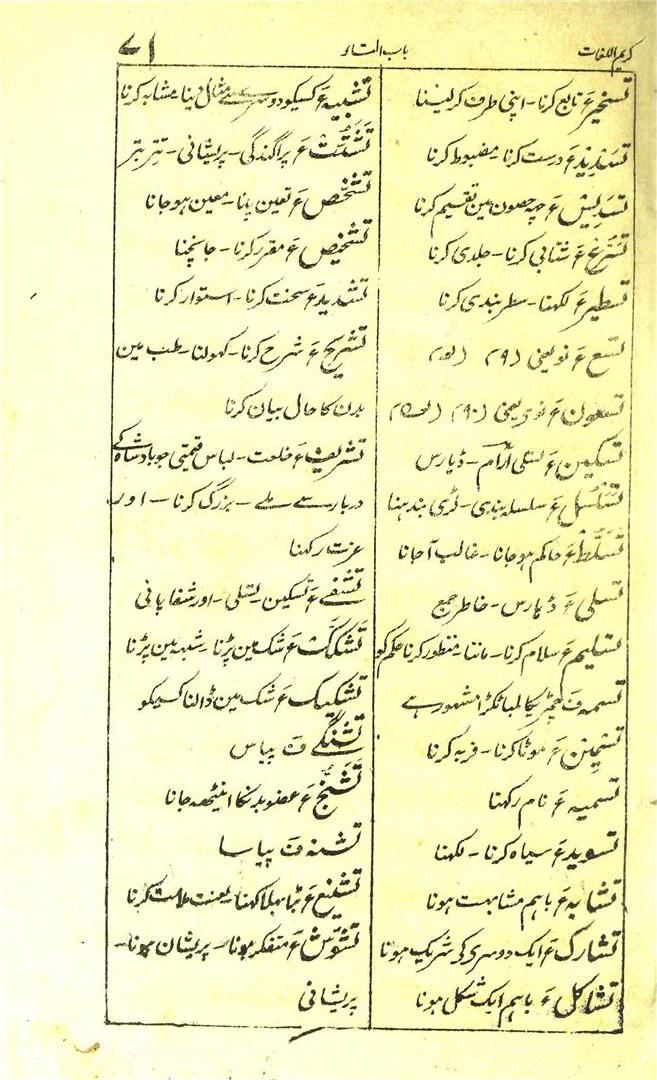 کریم اللغات
باب التاء
۷۱
تسخیر ع تابع کرنا - اپنی طرف کر لینا
تسدید ع درست کرنا - مضبوط کرنا
تسدیس ع چہہ حصون مین تقسیم کرنا
تسرّع ع شتابی کرنا - جلدی کرنا
تسطیر ع لکھنا - سطر بندی کرنا
تسع ع نو یعنی (۹)
تسعون ع نوی یعنی (۹۰)
تسکین ع تسلی آرام - ڈہارس
تسلسل ع سلسلہ بندی - لڑی بندہنا
تسلّط ع حاکم ہو جانا - غالب آ جانا
تسلی ع ڈہارس - خاطر جمع
تسلیم ع سلام کرنا - ماننا - منظور کرنا حکم کو
تسمہ ف چمڑیکا لمبا ٹکڑا مشہور ہے
تسمین ع موٹا کرنا - فربہ کرنا
تسمیہ ع نام رکہنا
تسوید ع سیاہ کرنا - لکھنا
تشابہ ع باہم مشابہت ہونا
تشارک ع ایک دوسری کی شریک ہونا
تشاکل ع باہم ایک شکل ہونا
تشبیہ ع کسیکو دوسرے سے مثال دینا مشابہ کرنا
تشتّت ع پراگندگی - پریشانی - تتر بتر
تشخّص ع تعین پانا - معین ہو جانا
تشخیص ع مقرر کرنا - جانچنا
تشدید ع سخت کرنا - استوار کرنا
تشریح ع شرح کرنا - کہولنا - طب مین
بدن کا حال بیان کرنا
تشریف ع خلعت - لباس قیمتی جو بادشاہ کے
دربار سے ملے - بزرگ کرنا - اور
عزت رکہنا
تشفے ع تسکین - تسلی - اور شفا پانی
تشکّک ع شک مین پڑنا - شبہہ مین پڑنا
تشکیک ع شک مین ڈالنا کسیکو
تشنگے ف پیاس
تشنّج ع عضو بدنکا اینٹھہ جانا
تشنہ ف پیاسا
تشنیع ع برا بہلا کہنا - لعنت ملامت کرنا
تشوّش ع متفکر ہونا - پریشان ہونا -
پریشانی